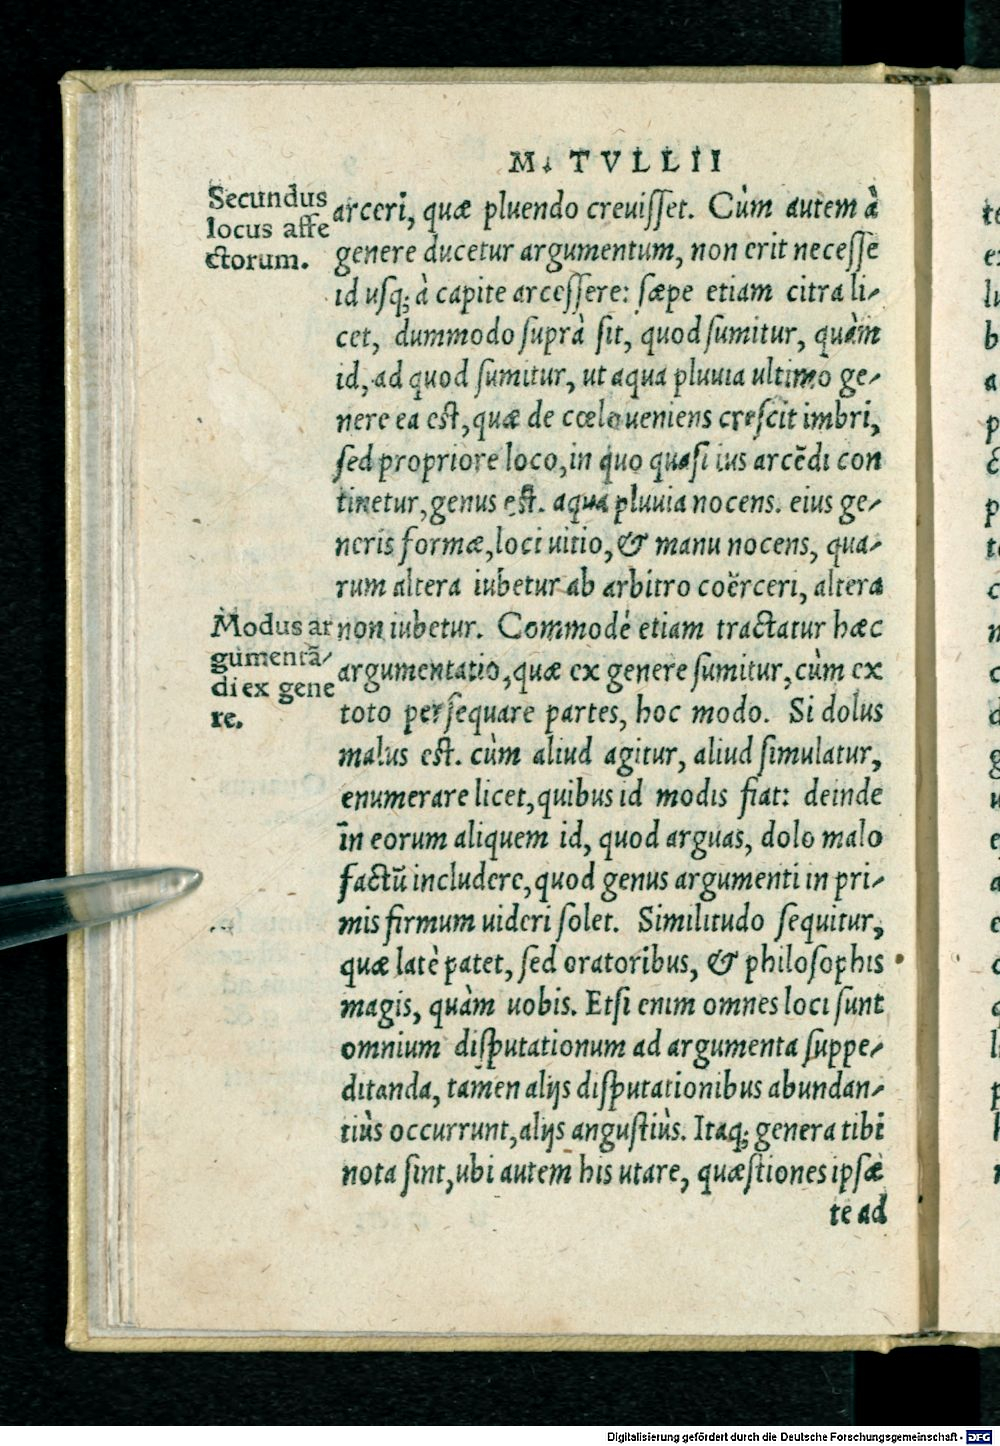 M. TVLLII
Secundus
locus affe
ctorum.
arceri, quæ pluendo creuisset. Cùm autem à
genere ducetur argumentum, non erit necesse
id usq; à capite arcessere: sæpe etiam citra li-
cet, dummodo suprà sit, quod sumitur, quàm
id, ad quod sumitur, ut aqua pluuia ultimo ge-
nere ea est, quæ de cœlo ueniens crescit imbri,
sed propriore loco, in quo quasi ius arcẽdi con
tinetur, genus est. aqua pluuia nocens. eius ge-
neris formæ, loci uitio, & manu nocens, qua-
rum altera iubetur ab arbitro coërceri, altera
non iubetur. Commodè etiam tractatur hæc
Modus ar
gumentã-
di ex gene
re.
argumentatio, quæ ex genere sumitur, cùm ex
toto persequare partes, hoc modo. Si dolus
malus est. cùm aliud agitur, aliud simulatur,
enumerare licet, quibus id modis fiat: deinde
in eorum aliquem id, quod arguas, dolo malo
factũ includere, quod genus argumenti in pri-
mis firmum uideri solet. Similitudo sequitur,
quæ latè patet, sed oratoribus, & philosophis
magis, quàm uobis. Etsi enim omnes loci sunt
omnium disputationum ad argumenta suppe-
ditanda, tamen alijs disputationibus abundan-
tiùs occurrunt, alijs angustiùs. Itaq; genera tibi
nota sint, ubi autem his utare, quæstiones ipsæ
te ad
Digitalisierung gefördert durch die Deutsche Forschungsgemeinschaft - DFG